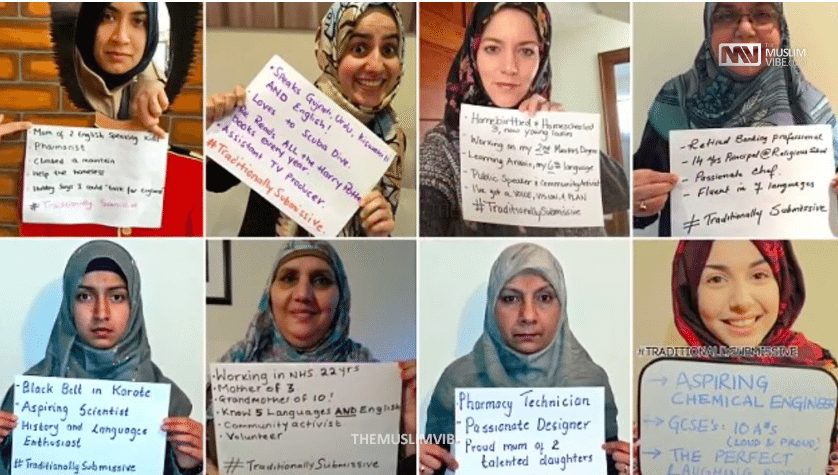 Mom of 2 English Speaking Kids
Pharmacist
Climbed a mountain
Help the homeless
Hubby Says I could "talk for England"
#Traditionally Submissive
• Speaks Gujrati, Urdu, Kiswahili
AND English!
• Loves to Scuba Dive.
• Re Reads ALL the Harry Potter
books Every Year
• Assistant TV Producer.
#TraditionallySubmissive.
• Homebirthed & Homeschooled
3, now young teens
• Working on my 2nd Masters Degree
• Learning Arabic, my 6th language
• Public Speaker & Community Activist
• I've got a VOICE, VISION & PLAN
#TraditionallySubmissive
MV
THE
MUSLIM
VIBE
- Retired Banking professional
- 14 yrs Principal@Religious School
- Passionate chef.
- Fluent in 7 languages
# Traditionally Submissive
• Black Belt in Karate
• Aspiring Scientist
• History and Languages
Enthusiast
#Traditionally Submissive
• Working in NHS 22yrs
• Mother of 3
• Grandmother of 10!
• Know 5 Languages AND English
• Community activist
• Volunteer
#Traditionally Submissive
THEMUSLIMVIBE
• Pharmacy Technician
- Passionate Designer
- Proud mum of 2
talented daughters
#Traditionally Submissive
#TRADITIONALLYSUBMISSIVE
→ ASPIRING
CHEMICAL ENGINEER
→ GCSE's: 10 A*S
(LOUD & PROUD)
→ THE PERFECT